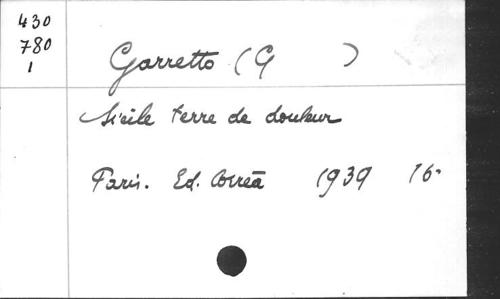 430
780
1
Garretto (G )
Sicile terre de douleur
Paris. Ed. Corrêa 1939 16°